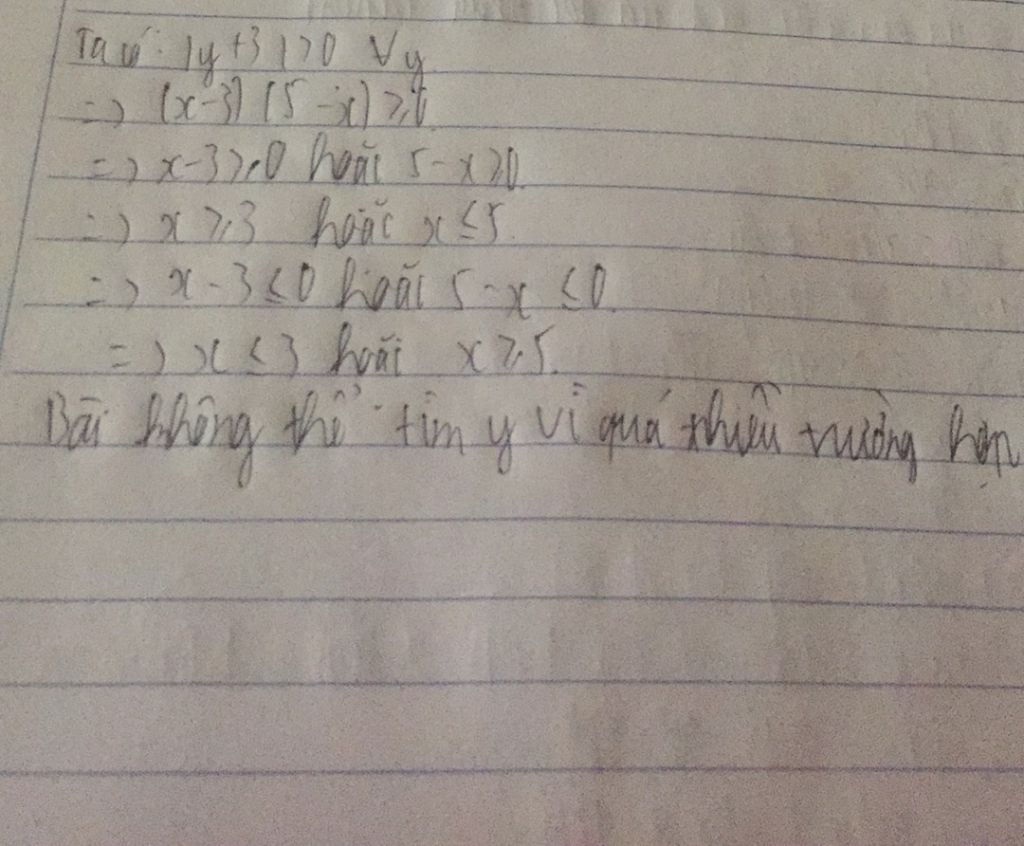 Ta có: |y+3| ≥ 0 ∀y
=> (x-3) (5-x) ≥ 0
=> x-3 ≥ 0 hoặc 5-x ≥ 0
=> x ≥ 3 hoặc x ≤ 5
=> x-3 ≤ 0 hoặc 5-x ≤ 0
=> x ≤ 3 hoặc x ≥ 5.
Bài không thể tìm y vì quá nhiều trường hợp